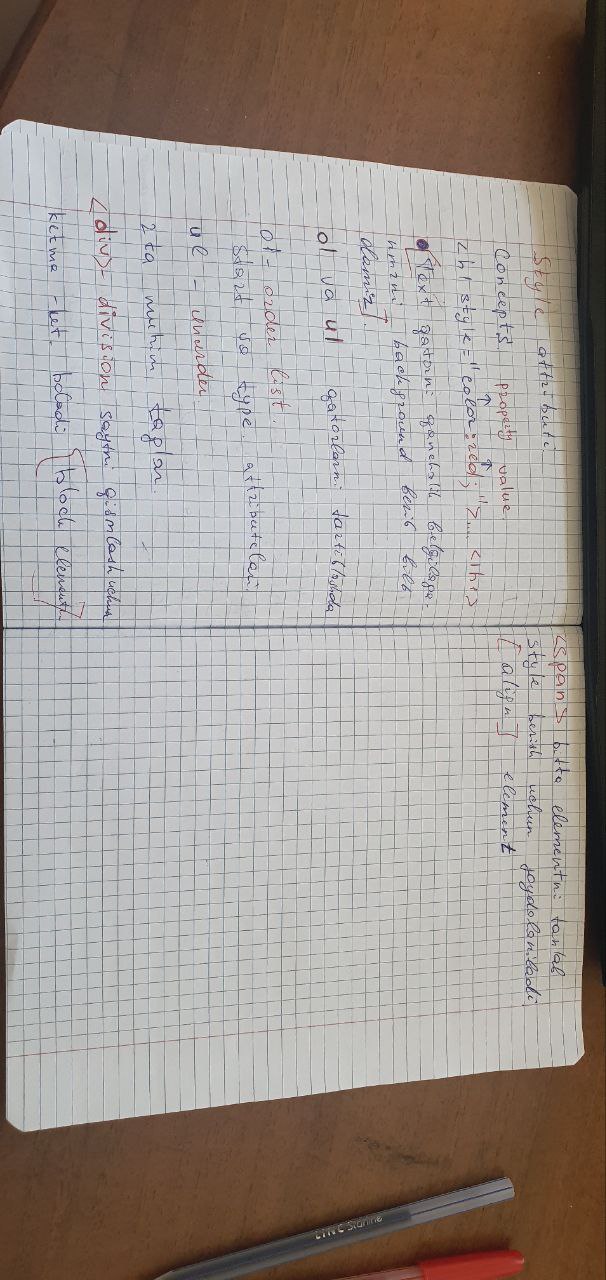 Style attributi
Concepts property value.
<h1 style="color:red;">... </h1>
Text qatorni qanchalik belgilagan
background berib
olamiz].
ol va ul qatorlarni tartiblashda
ol - order list.
Start va type attributelari.
ul - unorder
2 ta muhim taglar.
<div> - division saytni qismlash uchun
ketma-ket boladi [block element].
<span> bitta elementni tanlab
style berish uchun foydalaniladi
[align] element
LINC Starline